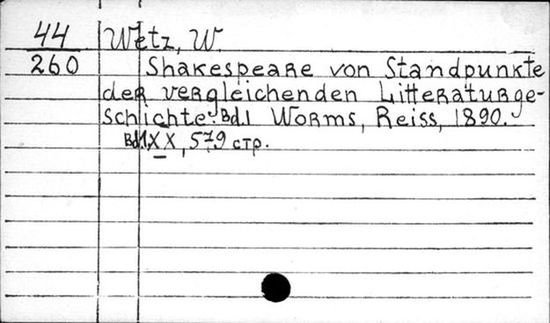 44 Wetz, W.
260 Shakespeare von Standpunkte
der vergleichenden Litteraturge-
schichte. Bd.1 Worms, Reiss, 1890.
Bd.1 XX, 579 стр.